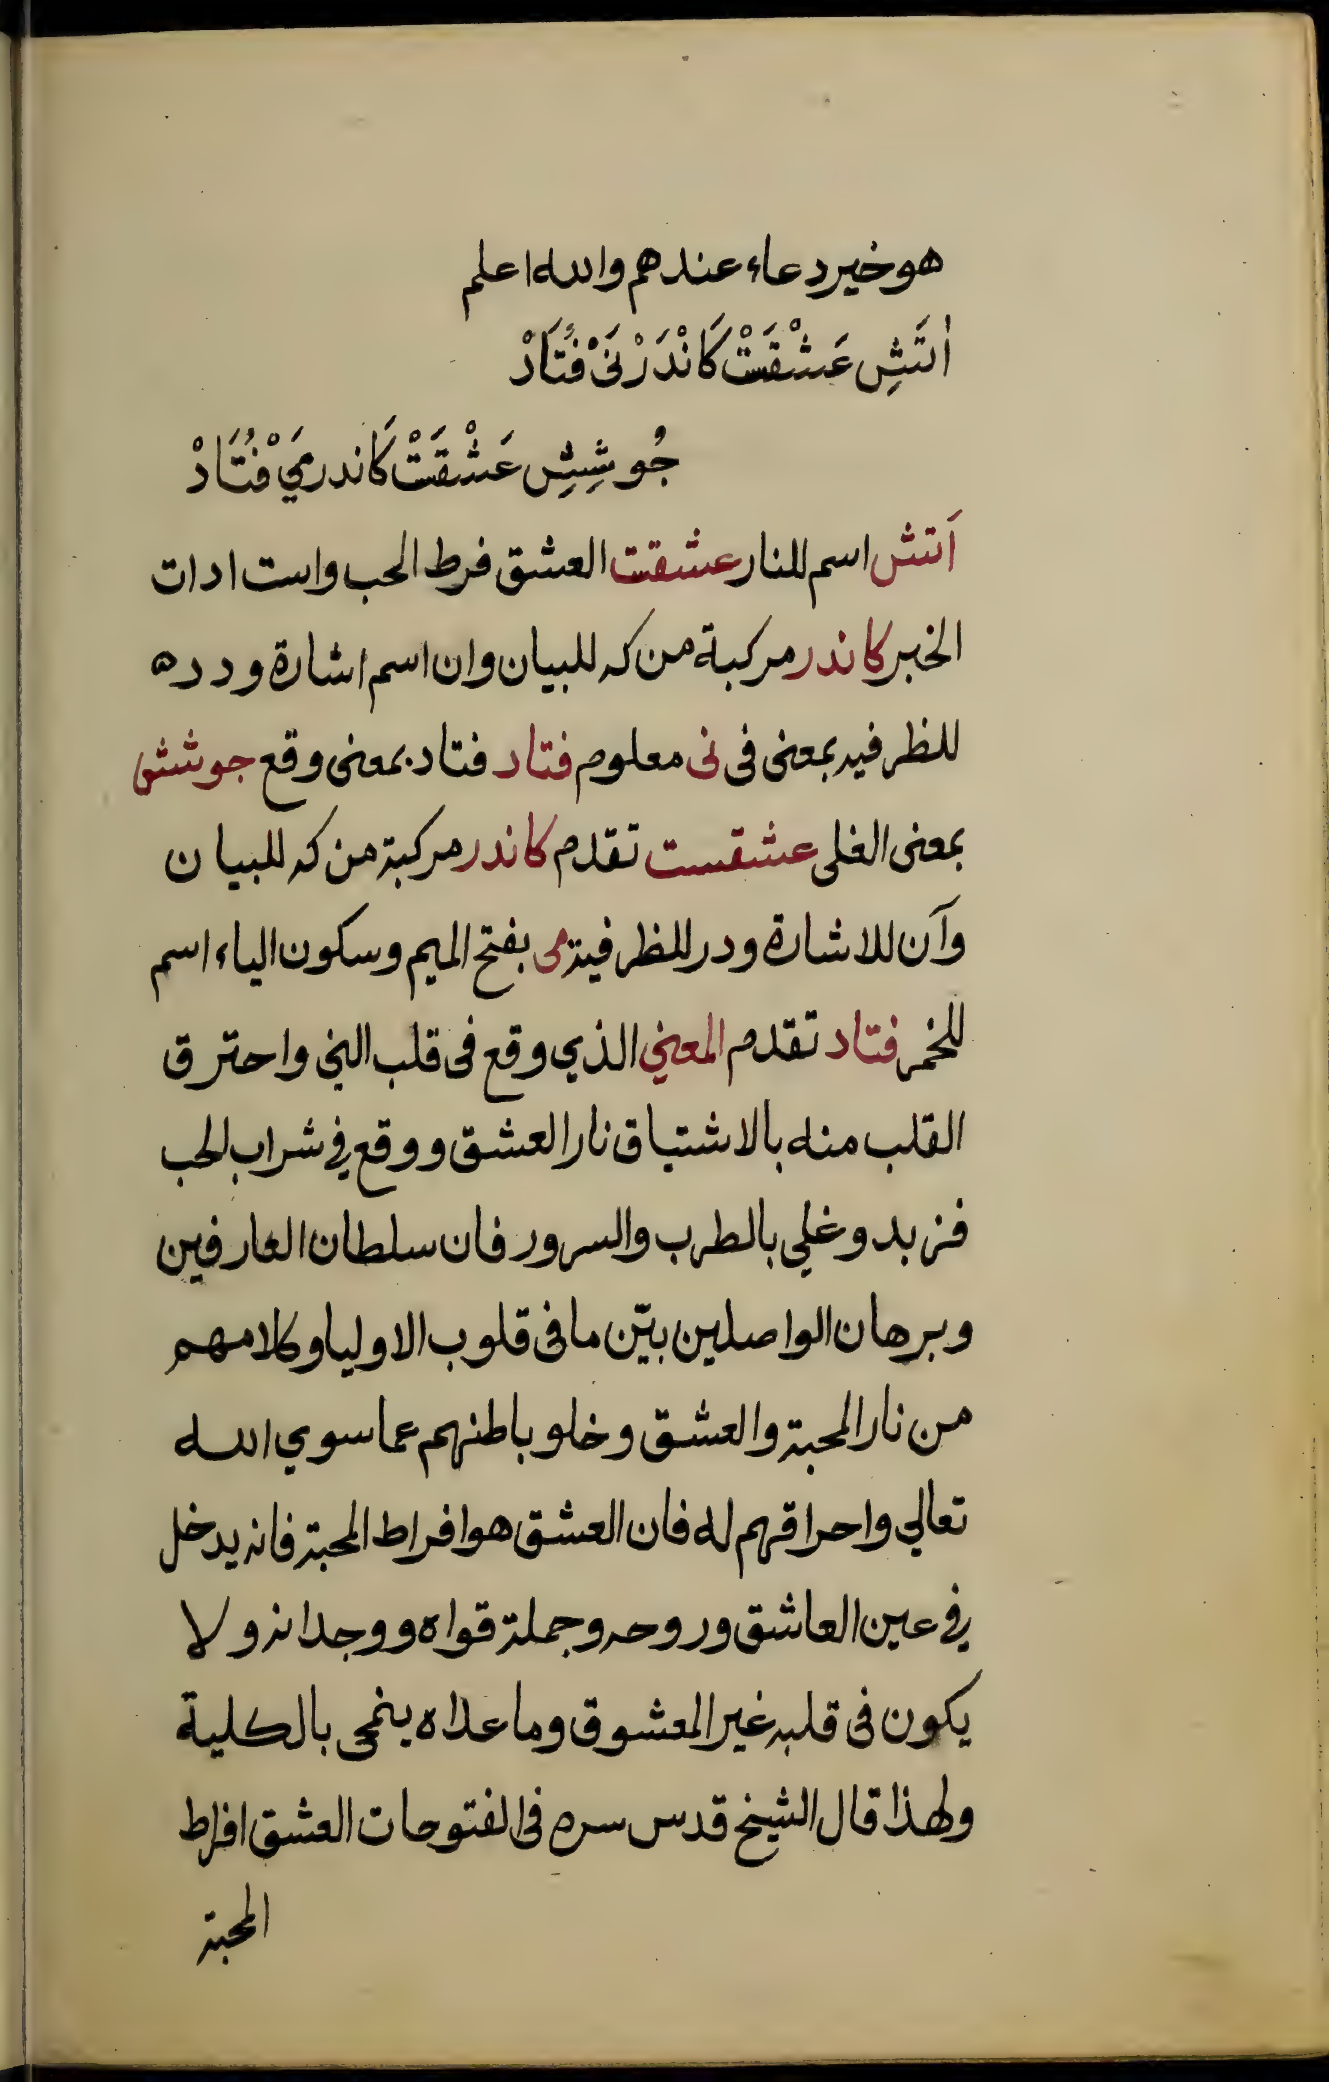 هو خير دعاء عندهم والله اعلم
اٰتَشِ عَشْقَتْ كَانْدَرْ نَىْ فُتَادْ
جُوشِشِ عَشْقَتْ كَاندر مَيْ فُتَادْ
اَتش اسم للنار عشقت العشق فرط الحب واست ادات
الخبر كاندر مركبة من كه للبيان وان اسم اشارة و دده
للظرفيه بمعنى فى نى معلوم فتاد فتاد بمعنى وقع جوشش
بمعنى الغلى عشقست تقدم كاندر مركبة من كه للبيان
وآن للاشارة ودر للظرفية مى بفتح الميم وسكون الياء اسم
للخمر فتاد تقدم المعني الذي وقع فى قلب الني واحترق
القلب منه بالاشتياق نار العشق ووقع في شراب الحب
فزبد وغلي بالطرب والسرور فان سلطان العارفين
وبرهان الواصلين بيّن ما فى قلوب الاوليا وكلامهم
من نار المحبة والعشق وخلو باطنهم عما سوي الله
تعالي واحراقهم له فان العشق هو افراط المحبة فانه يدخل
في عين العاشق وروحه وجملة قواه ووجدانه ولا
يكون فى قلبه غير المعشوق وما عداه ينمحى بالكلية
ولهذا قال الشيخ قدس سره فى الفتوحات العشق افراط
المحبة